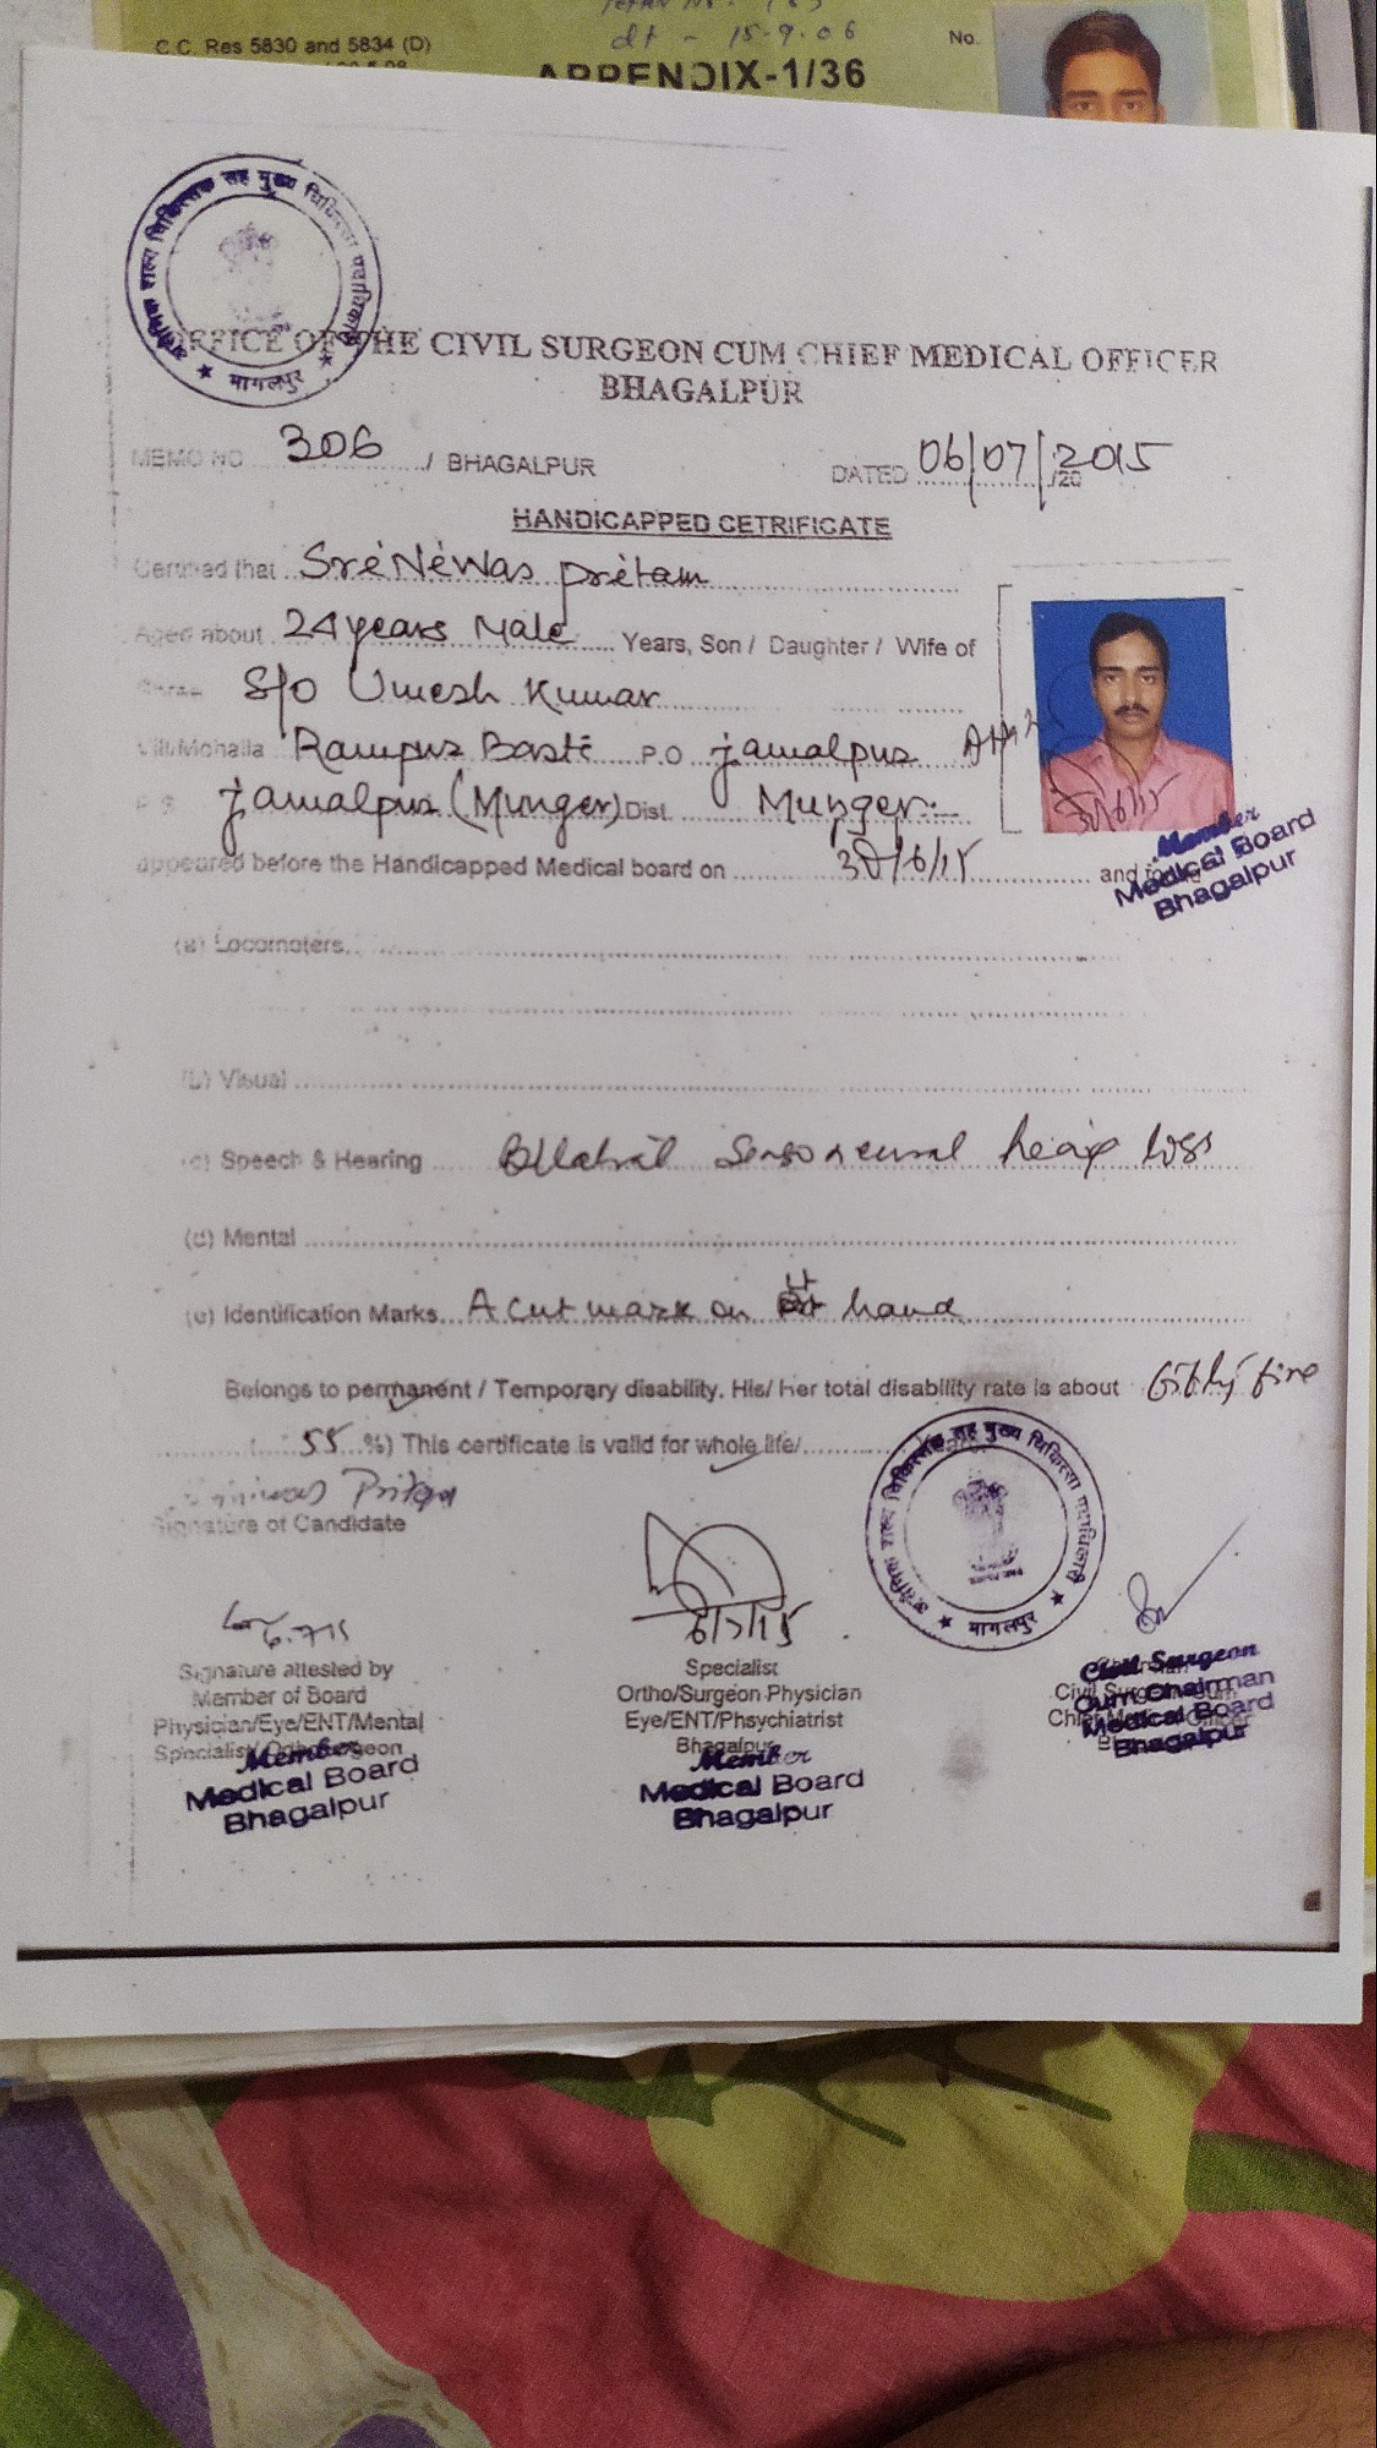 C.C. Res 5830 and 5834 (D)
dt - 15.9.06
No.
APPENDIX-1/36
असैनिक शल्य चिकित्सक सह मुख्य चिकित्सा पदाधिकारी
★ भागलपुर ★
OFFICE OF THE CIVIL SURGEON CUM CHIEF MEDICAL OFFICER
BHAGALPUR
MEMO NO 306 / BHAGALPUR
DATED 06/07/2015 /20
HANDICAPPED CETRIFICATE
Certified that SriNiwas Pritam
Aged about 24 years Male Years, Son / Daughter / Wife of
S/o Umesh Kumar
Vill/Mohalla Rampur Basti P.O jamalpur
P.S. jamalpur (Munger) Dist. Munger
30/6/15
appeared before the Handicapped Medical board on 30/6/15 and found
Member
Medical Board
Bhagalpur
(a) Locomoters
(b) Visual
(c) Speech & Hearing Bilatral Sensorineural hearing loss
(d) Mental
(e) Identification Marks A cut mark on Lt hand
Belongs to permanent / Temporary disability. His/ her total disability rate is about fifty five
55 %) This certificate is valid for whole life/ Years.
Sriniwas Pritam
Signature of Candidate
असैनिक शल्य चिकित्सक सह मुख्य चिकित्सा पदाधिकारी
★ भागलपुर ★
6.7.15
Signature attested by
Member of Board
Physician/Eye/ENT/Mental
Specialist/ Ortho Surgeon
Member
Medical Board
Bhagalpur
6/7/15
Specialist
Ortho/Surgeon Physician
Eye/ENT/Phsychiatrist
Bhagalpur
Member
Medical Board
Bhagalpur
Civil Surgeon
Cum Chairman
Medical Board
Bhagalpur